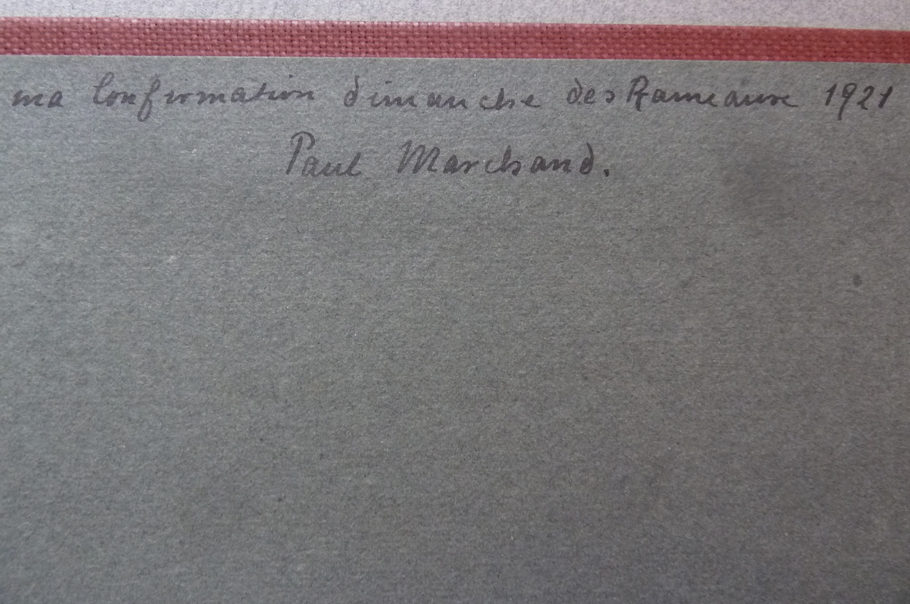 ma Confirmation dimanche des Rameaux 1921
Paul Marchand.